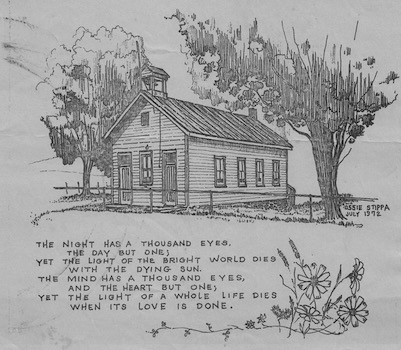 OSSIE STIPPA
JULY 1972
THE NIGHT HAS A THOUSAND EYES,
THE DAY BUT ONE;
YET THE LIGHT OF THE BRIGHT WORLD DIES
WITH THE DYING SUN.
THE MIND HAS A THOUSAND EYES,
AND THE HEART BUT ONE;
YET THE LIGHT OF A WHOLE LIFE DIES
WHEN ITS LOVE IS DONE.